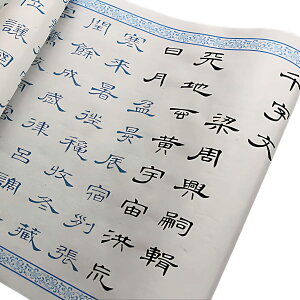 千字文
梁周興嗣輯
天地玄黃宇宙洪荒
日月盈昃辰宿列張
寒來暑往秋收冬藏
閏餘成歲律呂調
位讓國